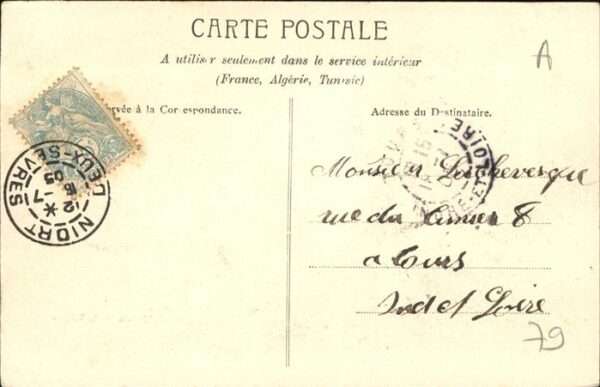 CARTE POSTALE
A
A utiliser seulement dans le service intérieur
(France, Algérie, Tunisie)
ervée à la Correspondance.
Adresse du Destinataire.
NIORT
DEUX-SÈVRES
12 * 7
16
05
ET-LOIRE
Monsieur
rue du 8
a Tours
Ind et Loire
79